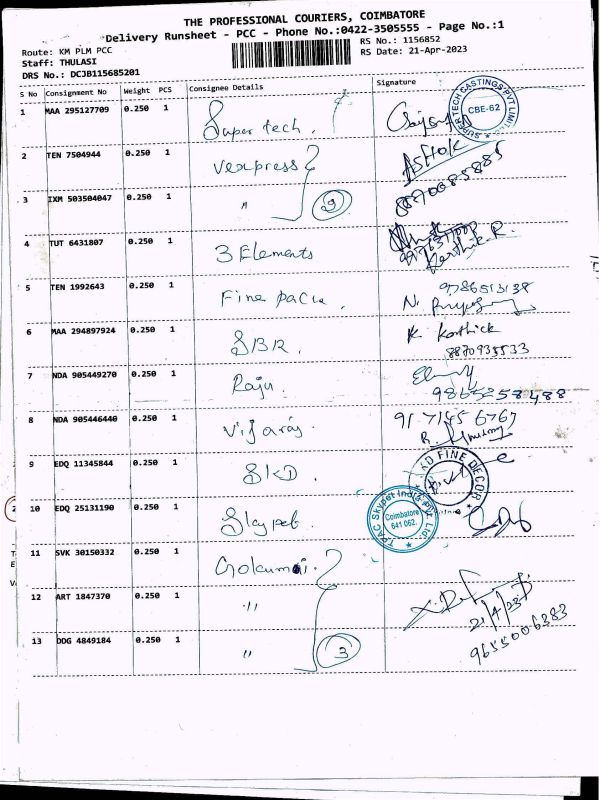 THE PROFESSIONAL COURIERS, COIMBATORE
Delivery Runsheet - PCC - Phone No.:0422-3505555 - Page No.:1
Route: KM PLM PCC
RS No.: 1156852
Staff: THULASI
RS Date: 21-Apr-2023
DRS No.: DCJB115685201
S No Consignment No Weight PCS Consignee Details Signature
1 MAA 295127709 0.250 1 Super tech.
SUPER TECH CASTINGS PVT LIMITED CBE-62
2 TEN 7504944 0.250 1 Vexpress ASHOK
3 IXM 503504047 0.250 1 " 2
4 TUT 6431807 0.250 1 3 Elements Karthick.R.
5 TEN 1992643 0.250 1
6 MAA 294897924 0.250 1 SBR. K Karthick
8870935533
7 NDA 905449270 0.250 1 Raju.
9865258488
8 NDA 905446440 0.250 1 Vijaraj. 91 7145 6767
9 EDQ 11345844 0.250 1 SKD.
KD FINE DECOR
10 EDQ 25131190 0.250 1 Skypet
Skypet India Pvt. Ltd. Coimbatore 641 062.
11 SVK 30150332 0.250 1
12 ART 1847370 0.250 1 "
21/4/23
13 DDG 4849184 0.250 1 " 3 9655006383